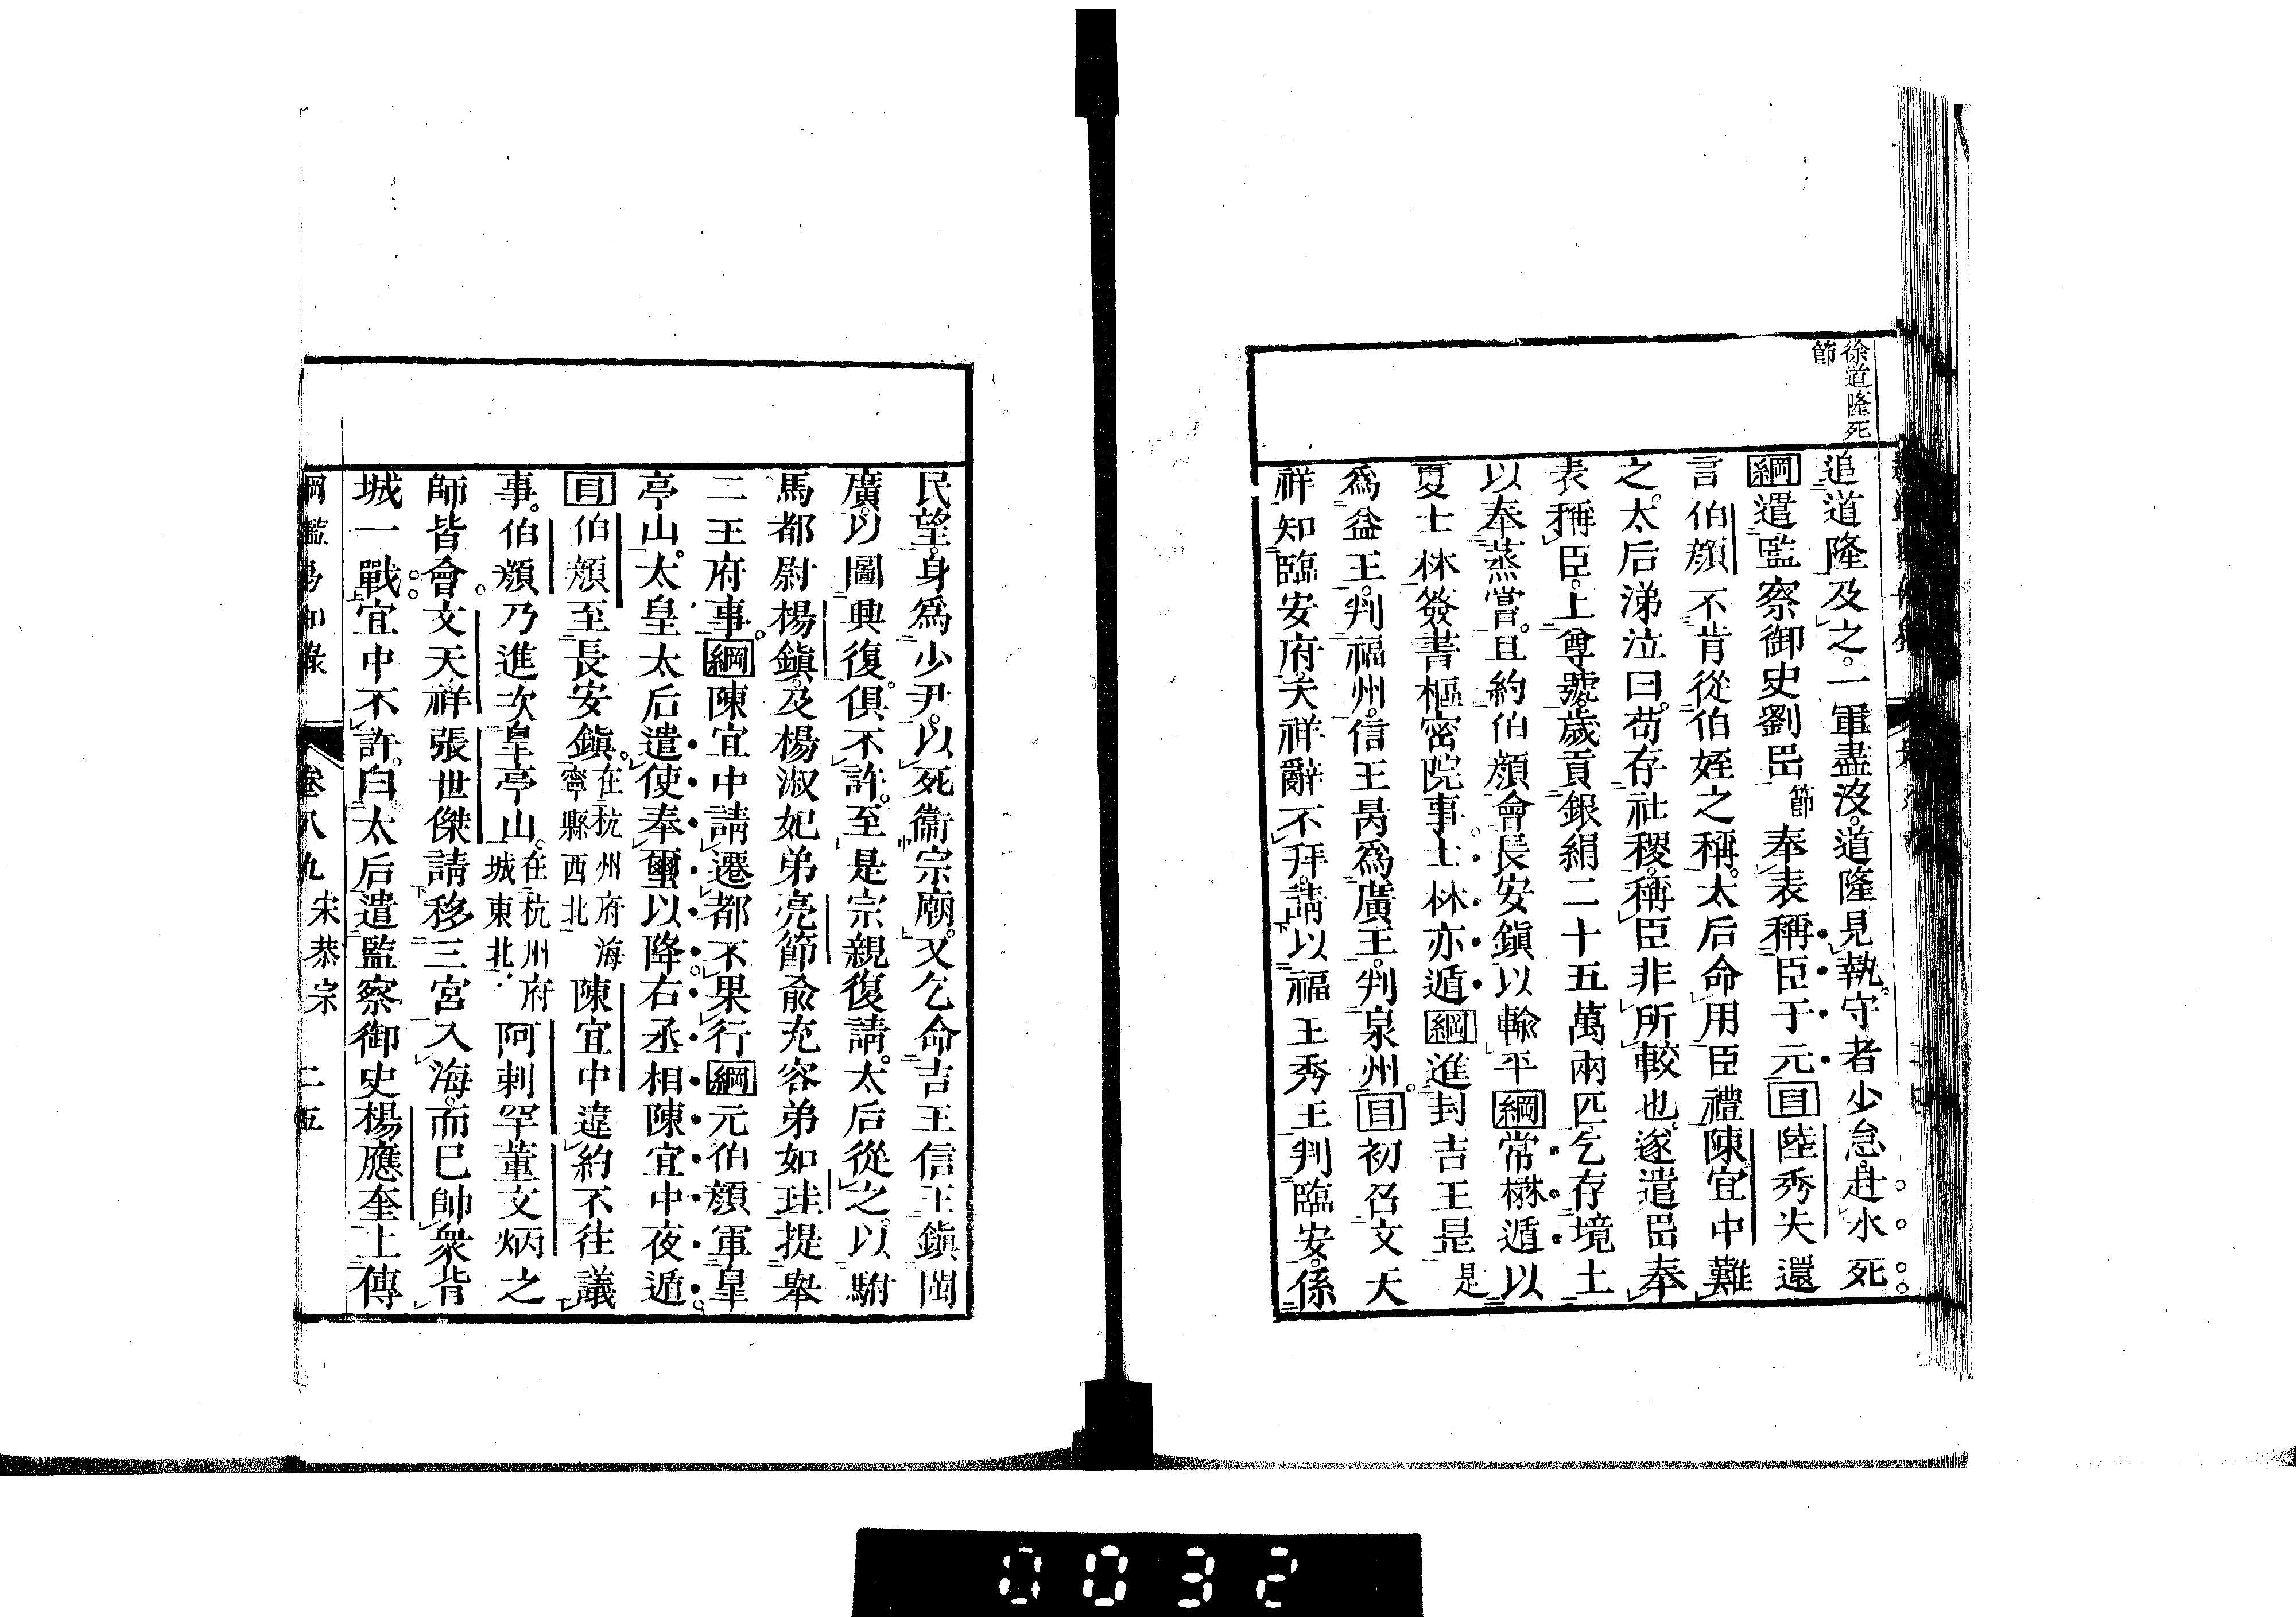 徐道隆死
節
追道隆及之。一軍盡沒。道隆見執。守者少怠。赴水死
綱遣監察御史劉岊節奉表稱臣于元目陸秀夫還
言伯顔不肯從伯姪之稱。太后命用臣禮。陳宜中難
之。太后涕泣曰。苟存社稷。稱臣非所較也。遂遣岊奉
表稱臣。上尊號。歲貢銀絹二十五萬兩匹。乞存境土
以奉蒸嘗。且約伯顔會長安鎭以輸平綱常楙遁以
夏士林簽書樞密院事。士林亦遁綱進封吉王昰是
爲益王。判福州。信王昺爲廣王。判泉州。目初召文天
祥知臨安府。天祥辭不拜。請以福王秀王判臨安。係
民望。身爲少尹。以死衞宗廟。又乞命吉王信王鎭閩
廣。以圖興復。俱不許。至是宗親復請。太后從之。以駙
馬都尉楊鎭。及楊淑妃弟亮節俞充容弟如珪提舉
二王府事。綱陳宜中請遷都不果行綱元伯顔軍皐
亭山。太皇太后遣使奉璽以降。右丞相陳宜中夜遁。
目伯顔至長安鎭。在杭州府海寧縣西北陳宜中違約不往議
事。伯顔乃進次皐亭山。在杭州府城東北阿剌罕董文炳之
師皆會。文天祥張世傑請移三宮入海。而已帥衆背
城一戰。宜中不許。白太后遣監察御史楊應奎上傳
綱鑑易知錄 卷八九 宋恭宗 二五